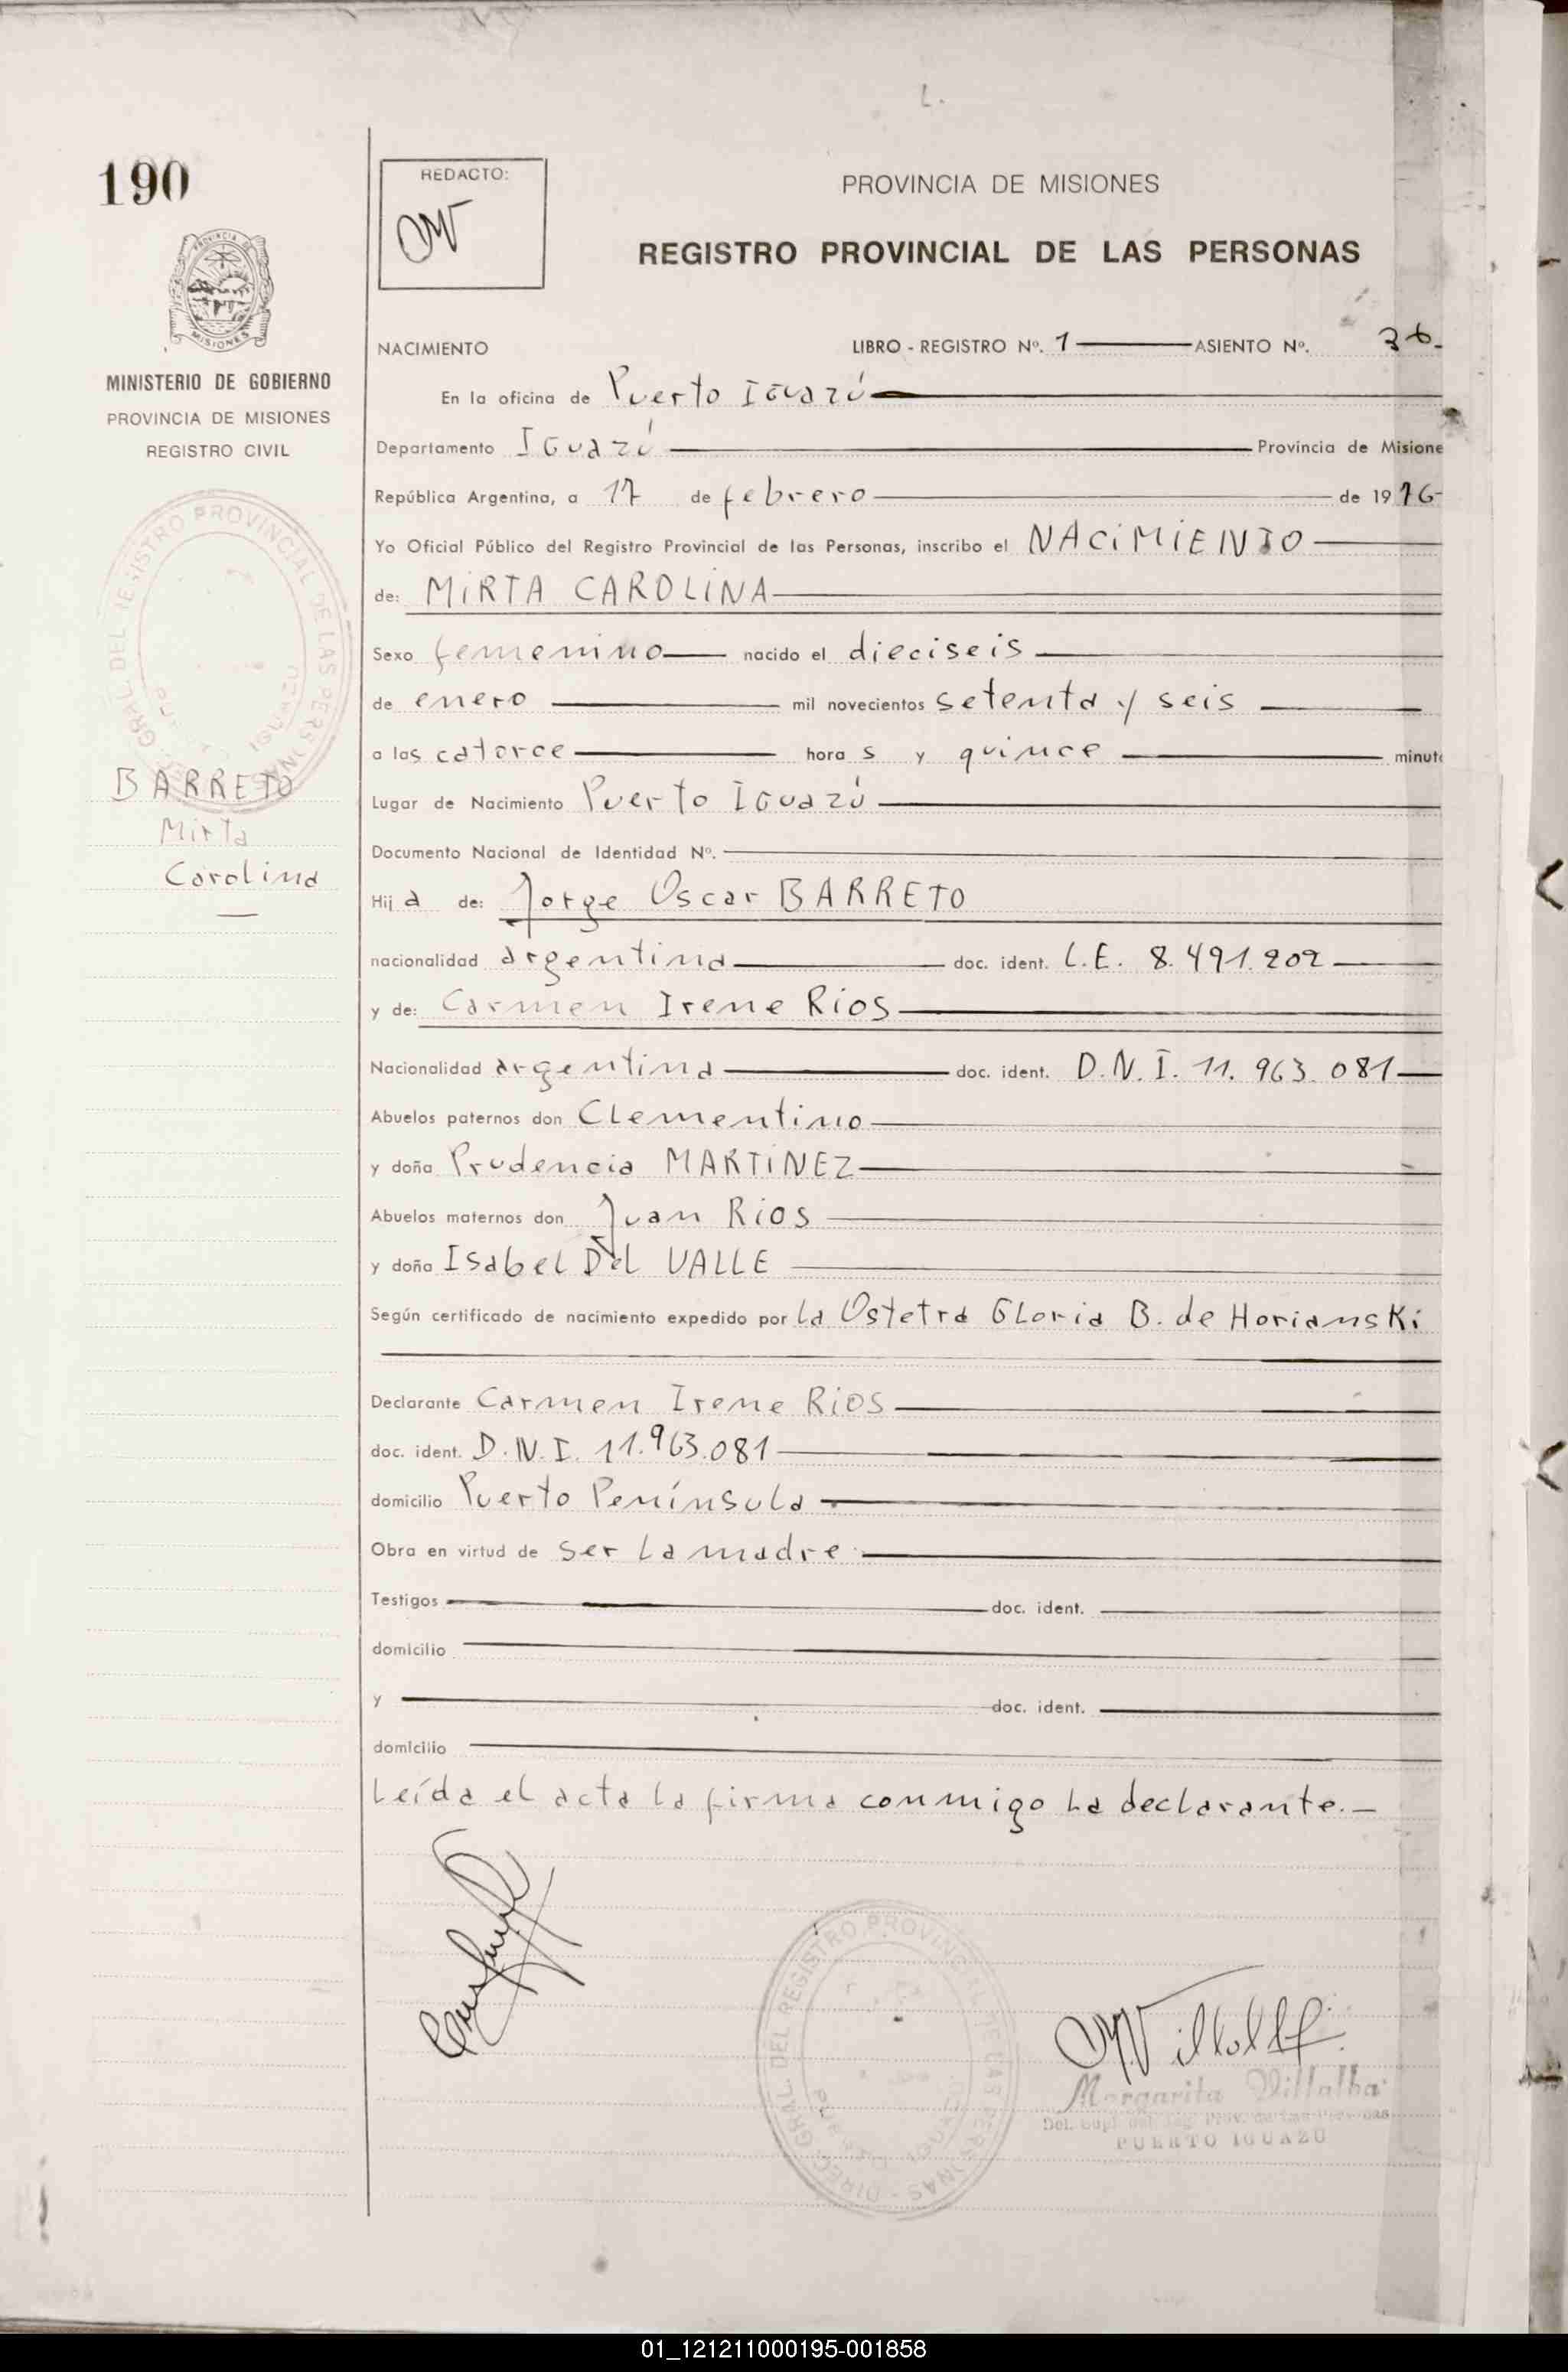 190
REDACTO:
PROVINCIA DE MISIONES
REGISTRO PROVINCIAL DE LAS PERSONAS
PROVINCIA DE
MISIONES
MINISTERIO DE GOBIERNO
PROVINCIA DE MISIONES
REGISTRO CIVIL
BARRETO
Mirta
Carolina
NACIMIENTO LIBRO - REGISTRO Nº. 1 ASIENTO Nº. 36
En la oficina de Puerto Iguazú
Departamento Iguazú Provincia de Misione
República Argentina, a 17 de febrero de 1976
Yo Oficial Público del Registro Provincial de las Personas, inscribo el NACIMIENTO
de: MIRTA CAROLINA
Sexo femenino nacido el dieciseis
de enero mil novecientos setenta y seis
a las catorce hora s y quince minut
Lugar de Nacimiento Puerto Iguazú
Documento Nacional de Identidad Nº.
Hij a de: Jorge Oscar BARRETO
nacionalidad argentina doc. ident. L.E. 8.491.202
y de: Carmen Irene Rios
Nacionalidad argentina doc. ident. D.N.I. 11.963.081
Abuelos paternos don Clementino
y doña Prudencia MARTINEZ
Abuelos maternos don Juan Rios
y doña Isabel Del VALLE
Según certificado de nacimiento expedido por la Ostetra Gloria B. de Horianski
Declarante Carmen Irene Rios
doc. ident. D.N.I. 11.963.081
domicilio Puerto Península
Obra en virtud de ser la madre
Testigos doc. ident.
domicilio
y doc. ident.
domicilio
Leída el acta la firma conmigo la declarante.-
DIREC. GRAL. DEL REGISTRO PROVINCIAL DE LAS PERSONAS
Margarita Villalba
PUERTO IGUAZU
01_121211000195-001858